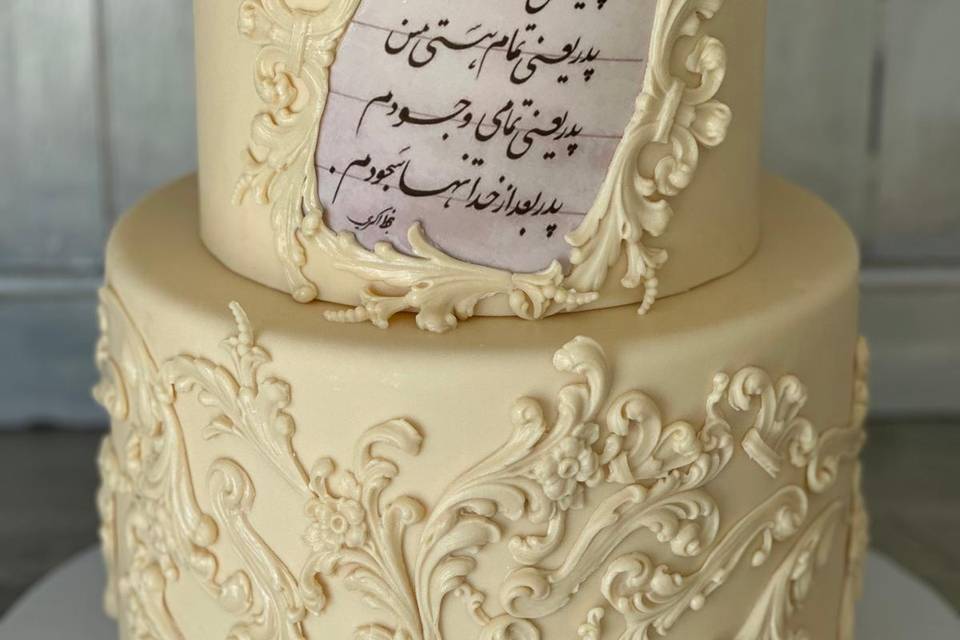 پدر یعنی تمام هستی من
پدر یعنی تمامی وجودم
پدر بعد از خدا تنها سجودم.